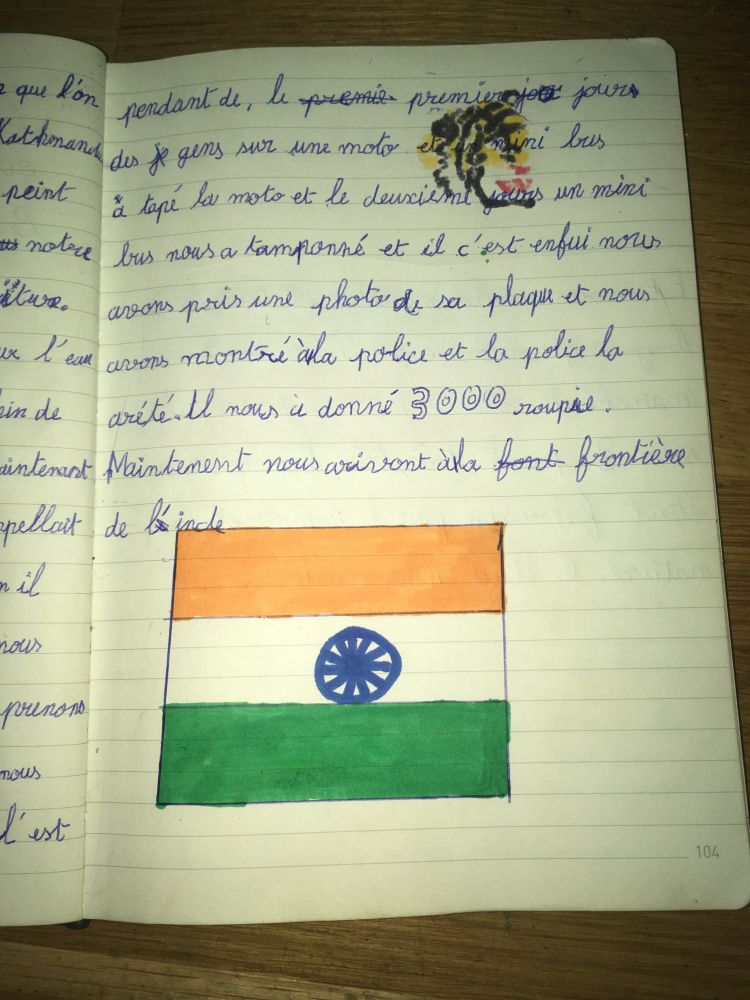 que l'on
Kathmand
peint
notere
iture.
l'eau
de
aintenant
ppellait
il
nous
prenons
nous
l'est
pendant de, le premie premier jour jours
des je gens sur une moto et un mini bus
a tapé la moto et le deuxième jours un mini
bus nous a tamponné et il c'est enfui nous
avons pris une photo de sa plaque et nous
avons montré à la police et la police la
arété. Il nous à donné 3000 roupie.
Maintenent nous arivont à la font frontière
de l'inde
104